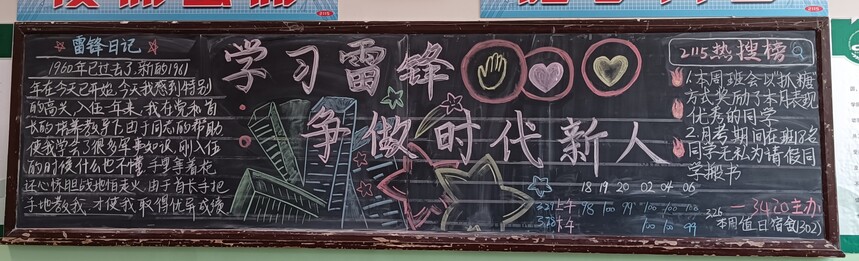 雷锋日记
1960年已过去了.新的1961
年在今天已开始.今天我感到特别
的高兴.入伍一年来.我在党和首
长的培养教导下.由于同志的帮助
使我学会了很多军事知识.刚入伍
的时侯什么也不懂.手里拿着花
还心惊胆战地怕走火.由于首长手把
手地教我.才使我取得优异成绩.
学习雷锋
争做时代新人
2115热搜榜
1.本周班会以抓糖
方式奖励了本月表现
优秀的同学
2.月考期间在班18名
同学无私为请假同
学报书
18 19 20 02 04 06
3.27上午 98 100 99 100 100 100
3.28上午 100 100 99
3.26
一3420主办
本周值日宿舍(302)
2115
2115